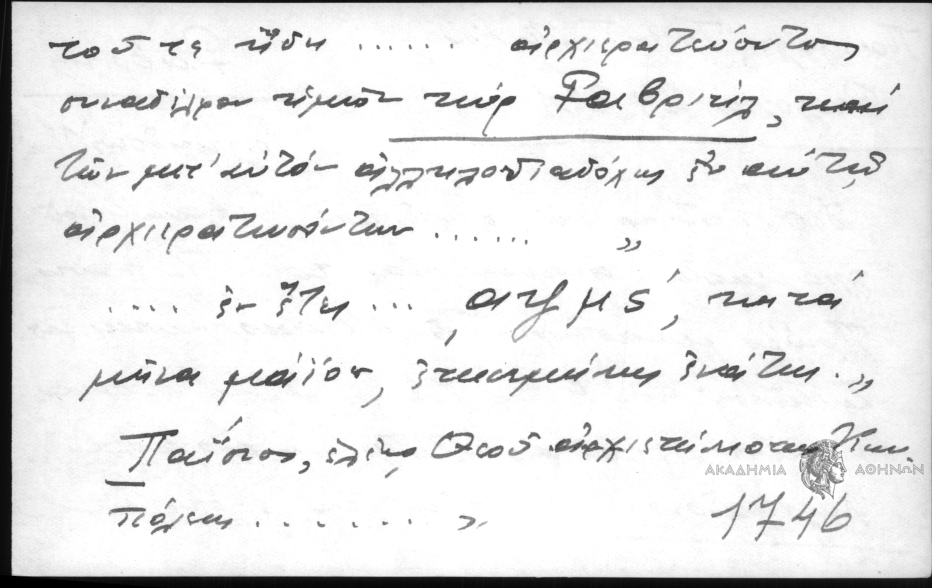 τοῦ τε ἤδη ...... ἀρχιερατεύοντος
συναδέλφου ἡμῶν κύρ Γαβριήλ, καί
τῶν μετ' αὐτόν ἀλληλοδιαδόχως ἐν αὐτῇ
ἀρχιερατευσόντων ...... »
.... ἐν ἔτει ... ͵αψμς΄, κατά
μῆνα μάϊον, ἐνάτης. »
Παΐσιος, ἐλέῳ Θεοῦ ἀρχιεπίσκοπος
πόλεως ........ ».
1746
ΑΚΑΔΗΜΙΑ ΑΘΗΝΩΝ